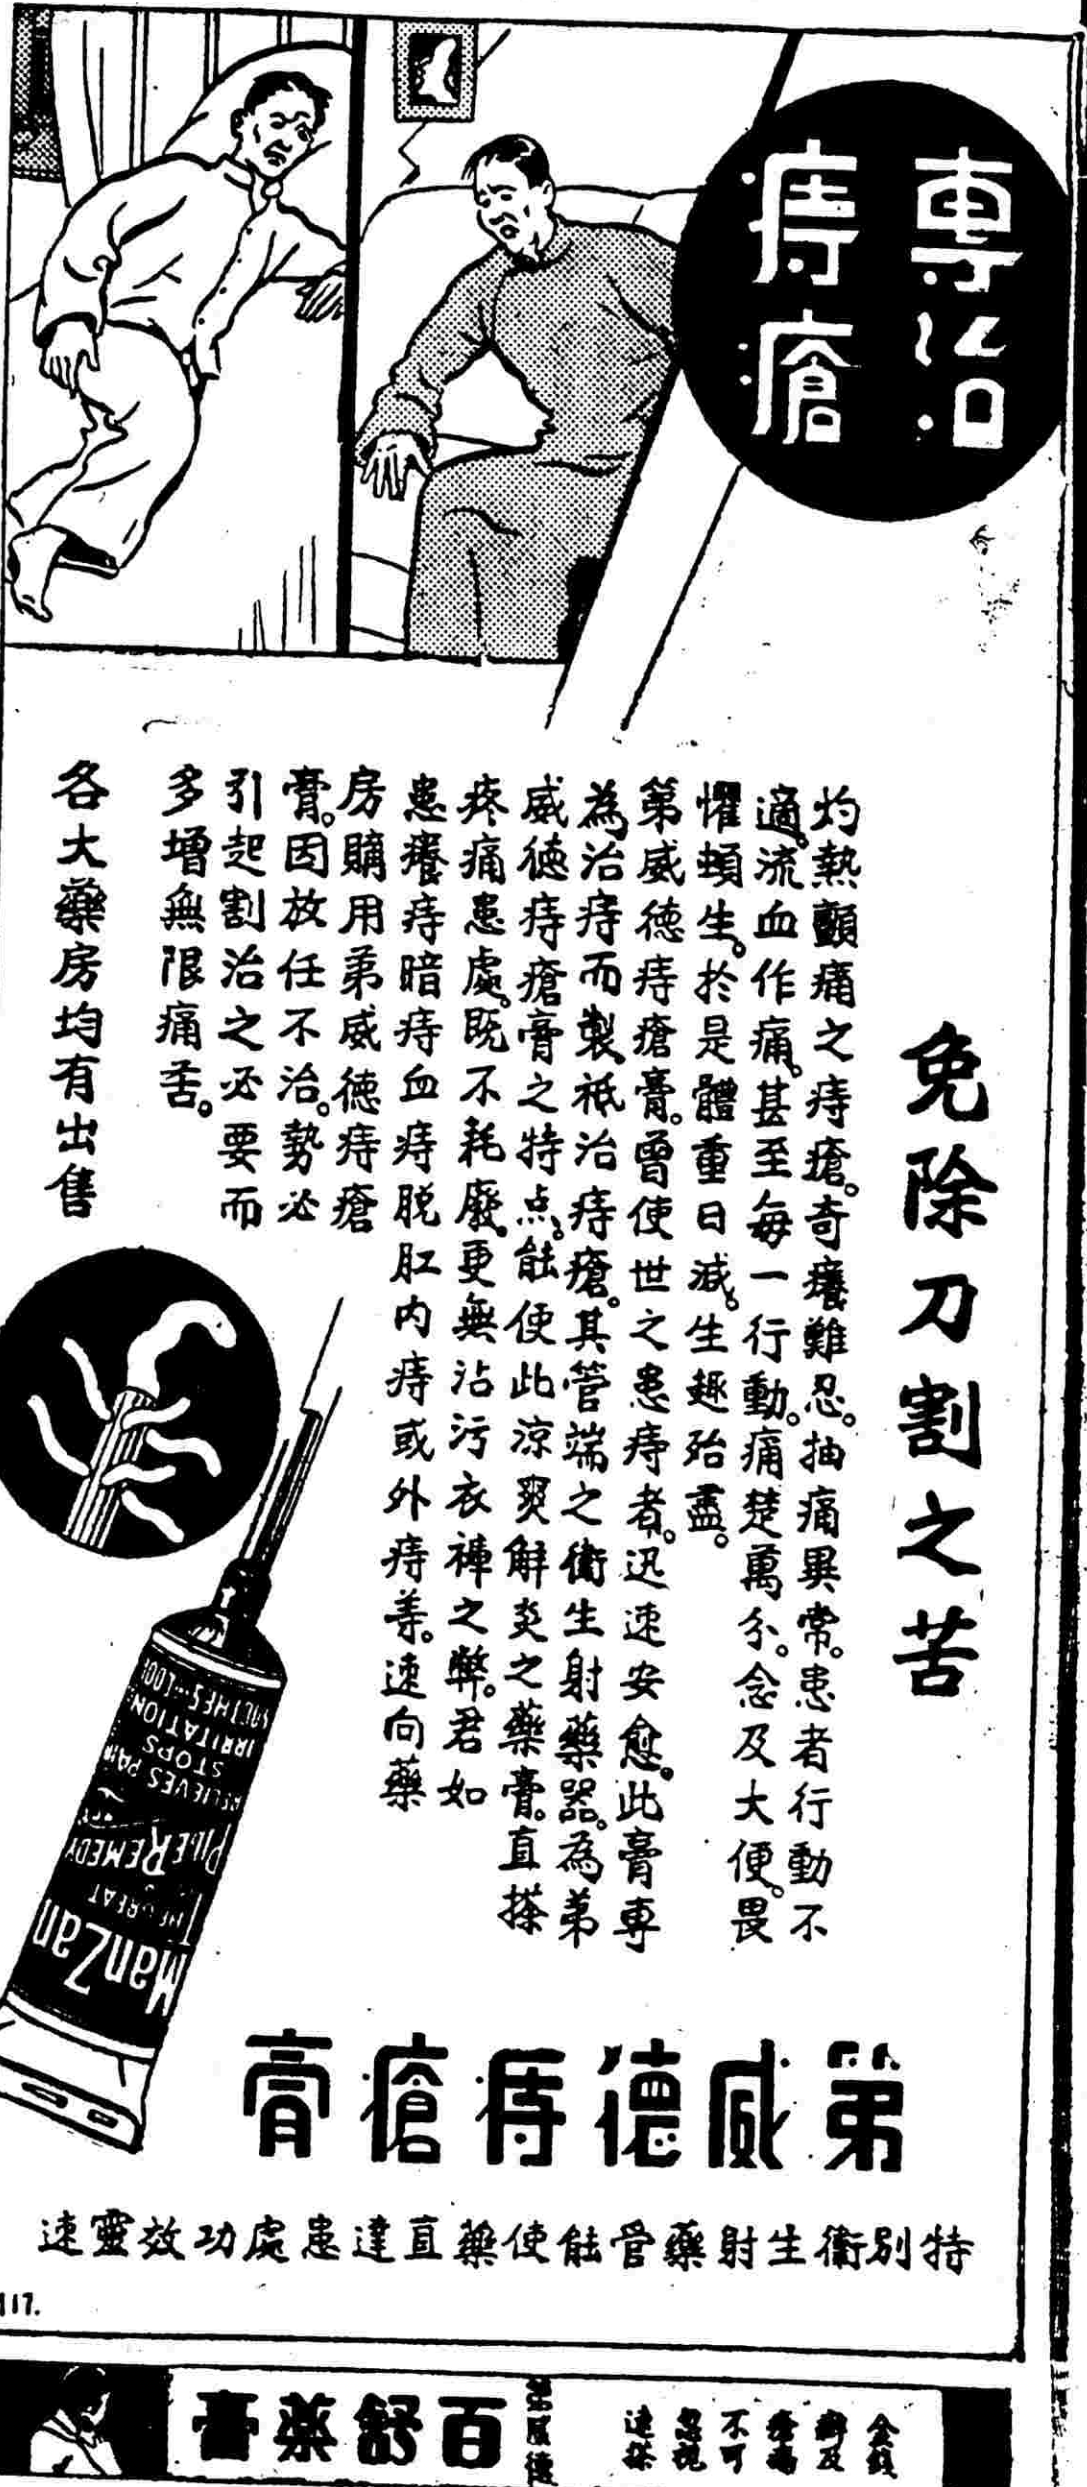 專治
痔瘡
免除刀割之苦
灼熱顫痛之痔瘡。奇癢難忍。抽痛異常。患者行動不
適。流血作痛。甚至每一行動。痛楚萬分。念及大便。畏
懼頓生。於是體重日減。生趣殆盡。
第威德痔瘡膏。曾使世之患痔者。迅速安愈。此膏專
為治痔而製。祇治痔瘡。其管端之衛生射藥器。為第
威德痔瘡膏之特点。能使此涼爽解炎之藥膏。直搽
疼痛患處。既不耗廢。更無沾污衣褲之弊。君如
患癢痔暗痔血痔脱肛内痔或外痔等。速向藥
房購用弟威德痔瘡
膏。因放任不治。勢必
引起割治之必要而
多增無限痛苦。
各大藥房均有出售
ManZan
THE GREAT
PILE REMEDY
RELIEVES PAIN
STOPS
IRRITATION
SOOTHES
第威德痔瘡膏
特別衛生射藥管能使藥直達患處功效靈速
117.
百舒藥膏
不可